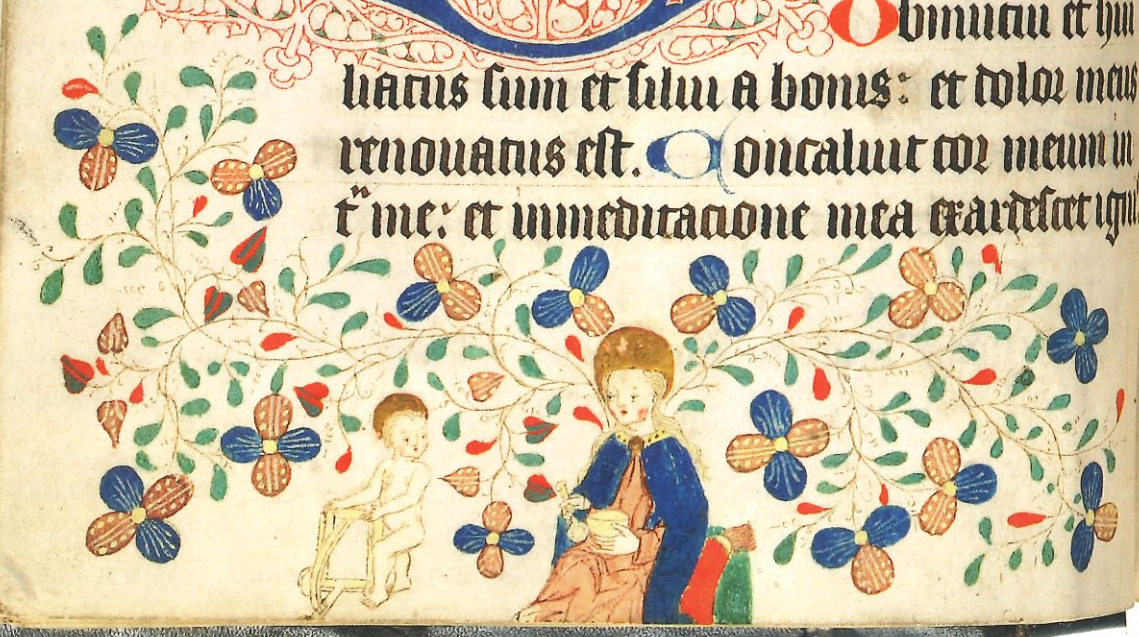 Obmutui et hui
liatus sum et silui a bonis: et dolor meus
renouatus est. Concaluit cor meum in
t̄ me: et in meditacione mea exardescet igni